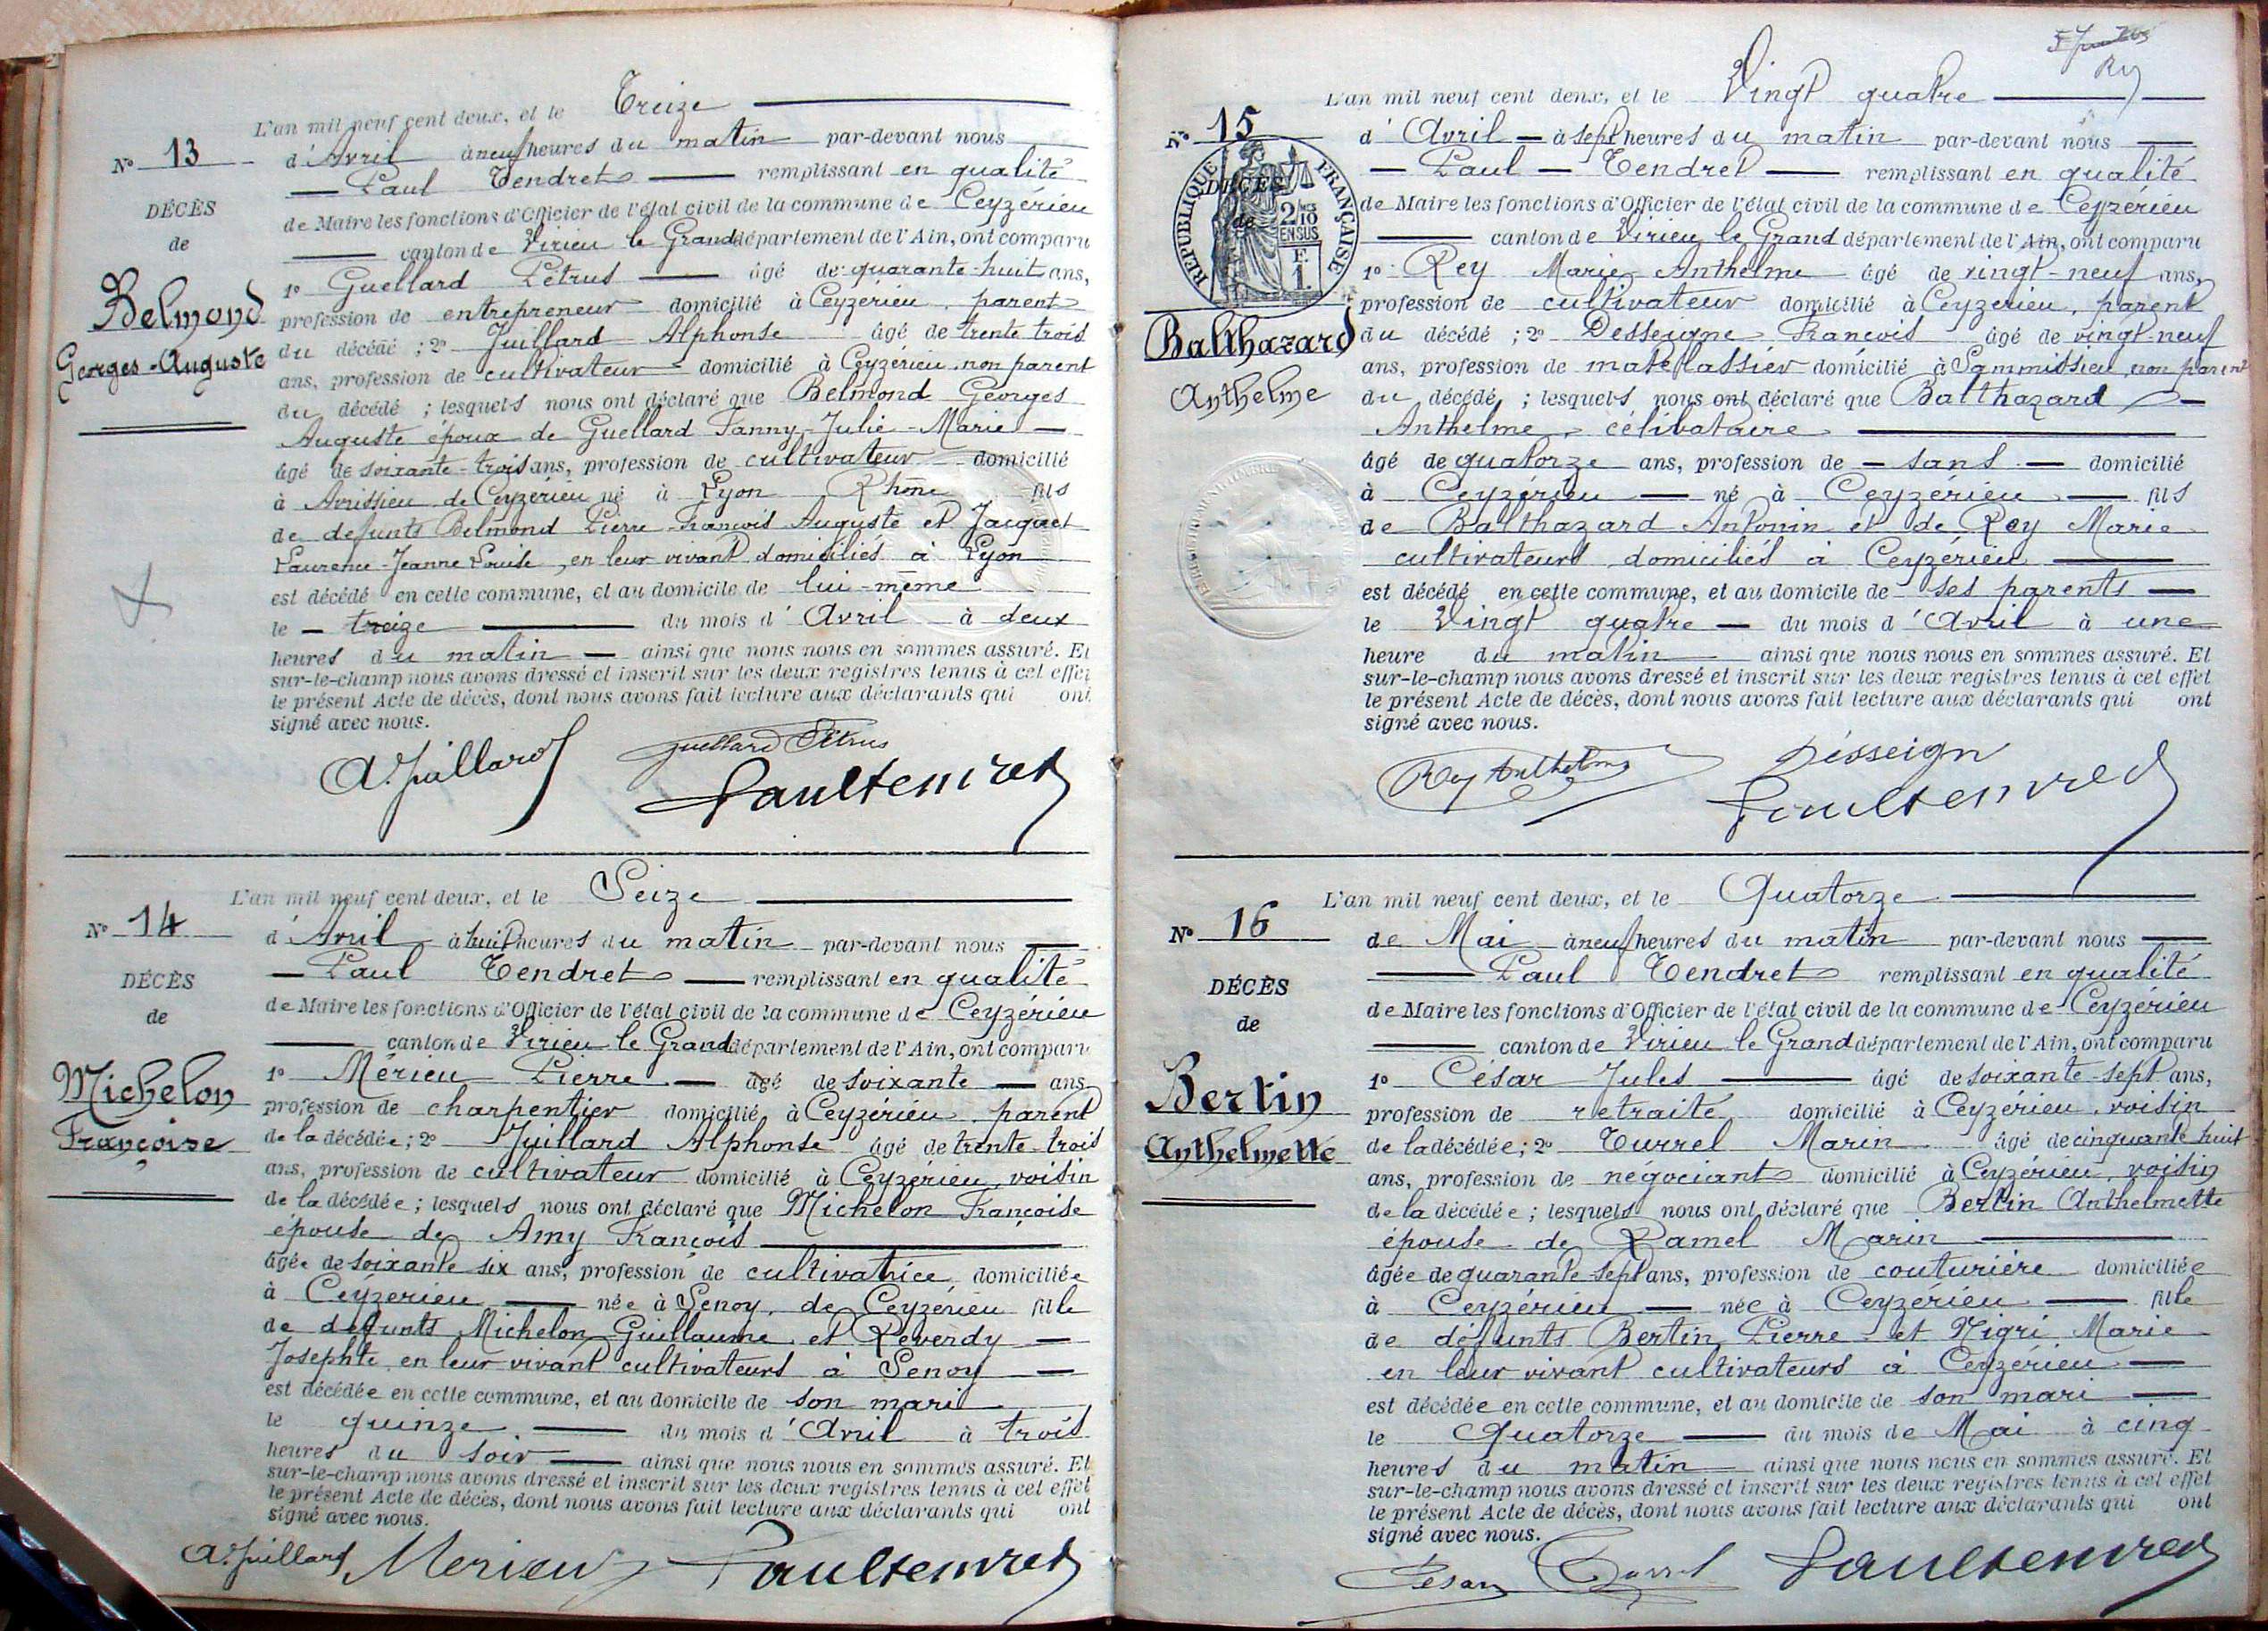 L'an mil neuf cent deux, et le Treize
N° 13
d'Avril à neuf heures du matin par-devant nous
Paul Tendret remplissant en qualité
DÉCÈS
de Maire les fonctions d'Officier de l'état civil de la commune de Ceyzérieu
de
canton de Virieu le Grand département de l'Ain, ont comparu
1° Guellard Pétrus âgé de quarante-huit ans,
Belmond
profession de entrepreneur domicilié à Ceyzérieu, parent
Georges-Auguste
du décédé ; 2° Juillard Alphonse âgé de trente trois
ans, profession de cultivateur domicilié à Ceyzérieu, non parent
du décédé ; lesquels nous ont déclaré que Belmond Georges
Auguste époux de Guellard Fanny-Julie-Marie
âgé de soixante-trois ans, profession de cultivateur domicilié
à Avrissieu de Ceyzérieu né à Lyon Rhône fils
de defunts Belmond Pierre-François Auguste et Jacquet
Laurence-Jeanne Louise, en leur vivant domiciliés à Lyon
est décédé en cette commune, et au domicile de lui-même
le treize du mois d'Avril à deux
heures du matin ainsi que nous nous en sommes assuré. Et
sur-le-champ nous avons dressé et inscrit sur les deux registres tenus à cet effet
le présent Acte de décès, dont nous avons fait lecture aux déclarants qui ont
signé avec nous.
A. Juillard Guellard Pétrus
Paul Tendret
L'an mil neuf cent deux, et le Seize
N° 14
d'Avril à huit heures du matin par-devant nous
Paul Tendret remplissant en qualité
DÉCÈS
de Maire les fonctions d'Officier de l'état civil de la commune de Ceyzérieu
de
canton de Virieu le Grand département de l'Ain, ont comparu
1° Mérieu Pierre âgé de soixante ans
Michelon
profession de charpentier domicilié à Ceyzérieu, parent
Françoise
de la décédée ; 2° Juillard Alphonse âgé de trente-trois
ans, profession de cultivateur domicilié à Ceyzérieu, voisin
de la décédée ; lesquels nous ont déclaré que Michelon Françoise
épouse de Amy François
âgée de soixante six ans, profession de cultivatrice domiciliée
à Ceyzérieu née à Senoy, de Ceyzérieu fille
de défunts Michelon Guillaume et Reverdy
Josephte en leur vivant cultivateurs à Senoy
est décédée en cette commune, et au domicile de son mari
le quinze du mois d'Avril à trois
heures du soir ainsi que nous nous en sommes assuré. Et
sur-le-champ nous avons dressé et inscrit sur les deux registres tenus à cet effet
le présent Acte de décès, dont nous avons fait lecture aux déclarants qui ont
signé avec nous.
A. Juillard Merieu Paul Tendret
L'an mil neuf cent deux, et le Vingt quatre
N° 15
d'Avril à sept heures du matin par-devant nous
Paul Tendret remplissant en qualité
RÉPUBLIQUE FRANÇAISE
DÉCÈS
2/10 EN SUS
F. 1.
de
de Maire les fonctions d'Officier de l'état civil de la commune de Ceyzérieu
canton de Virieu le Grand département de l'Ain, ont comparu
1° Rey Marie Anthelme âgé de vingt-neuf ans,
profession de cultivateur domicilié à Ceyzerieu, parent
Balthazard
du décédé ; 2° Desseigne François âgé de vingt-neuf
ans, profession de matelassier domicilié à Sammissieu, non parent
Anthelme
du décédé ; lesquels nous ont déclaré que Balthazard
Anthelme, célibataire
âgé de quatorze ans, profession de sans domicilié
à Ceyzérieu né à Ceyzérieu fils
de Balthazard Antonin et de Rey Marie
cultivateurs domiciliés à Ceyzérieu
est décédé en cette commune, et au domicile de ses parents
le Vingt quatre du mois d'Avril à une
heure du matin ainsi que nous nous en sommes assuré. Et
sur-le-champ nous avons dressé et inscrit sur les deux registres tenus à cet effet
le présent Acte de décès, dont nous avons fait lecture aux déclarants qui ont
signé avec nous.
Rey Anthelme Désseign
Paul Tendret
L'an mil neuf cent deux, et le Quatorze
N° 16
de Mai à neuf heures du matin par-devant nous
Paul Tendret remplissant en qualité
DÉCÈS
de Maire les fonctions d'Officier de l'état civil de la commune de Ceyzérieu
de
canton de Virieu le Grand département de l'Ain, ont comparu
1° César Jules âgé de soixante-sept ans,
Bertin
profession de retraité domicilié à Ceyzérieu, voisin
Anthelmette
de la décédée ; 2° Turrel Marin âgé de cinquante huit
ans, profession de négociant domicilié à Ceyzérieu, voisin
de la décédée ; lesquels nous ont déclaré que Bertin Anthelmette
épouse de Ramel Marin
âgée de quarante-sept ans, profession de couturière domiciliée
à Ceyzérieu née à Ceyzerieu fille
de défunts Bertin Pierre et Nigri Marie
en leur vivant cultivateurs à Ceyzérieu
est décédée en cette commune, et au domicile de son mari
le Quatorze du mois de Mai à cinq
heures du matin ainsi que nous nous en sommes assuré. Et
sur-le-champ nous avons dressé et inscrit sur les deux registres tenus à cet effet
le présent Acte de décès, dont nous avons fait lecture aux déclarants qui ont
signé avec nous.
César Turrel Paul Tendret